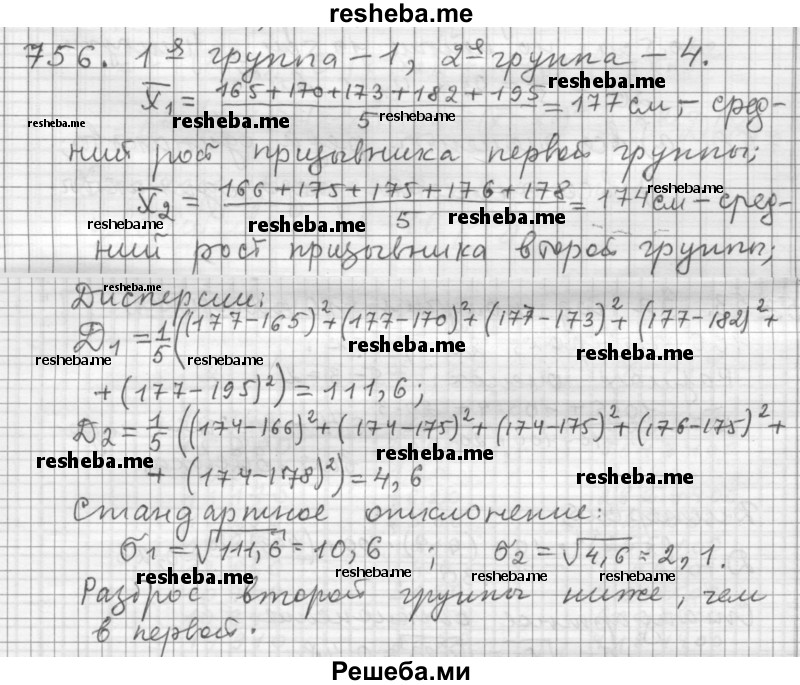 resheba.me
756. 1я группа – 1, 2я группа – 4.
resheba.me
X̅₁ = (165+170+173+182+195)/5 = 177 см, – сред-
resheba.me resheba.me resheba.me
ний рост призывника первой группы;
X̅₂ = (166+175+175+176+178)/5 = 174 см – сред-
resheba.me resheba.me resheba.me resheba.me
ний рост призывника второй группы;
resheba.me
Дисперсии:
D₁ = 1/5 ((177-165)²+(177-170)²+(177-173)²+(177-182)²+
resheba.me resheba.me resheba.me resheba.me
+ (177-195)²) = 111,6;
D₂ = 1/5 ((174-166)²+(174-175)²+(174-175)²+(176-175)²+
resheba.me resheba.me resheba.me
+ (174-178)²) = 4,6
Стандартное отклонение:
σ₁ = √111,6 = 10,6 ; σ₂ = √4,6 = 2,1.
resheba.me resheba.me resheba.me resheba.me
Разброс второй группы ниже, чем
в первой.
Решеба.ми